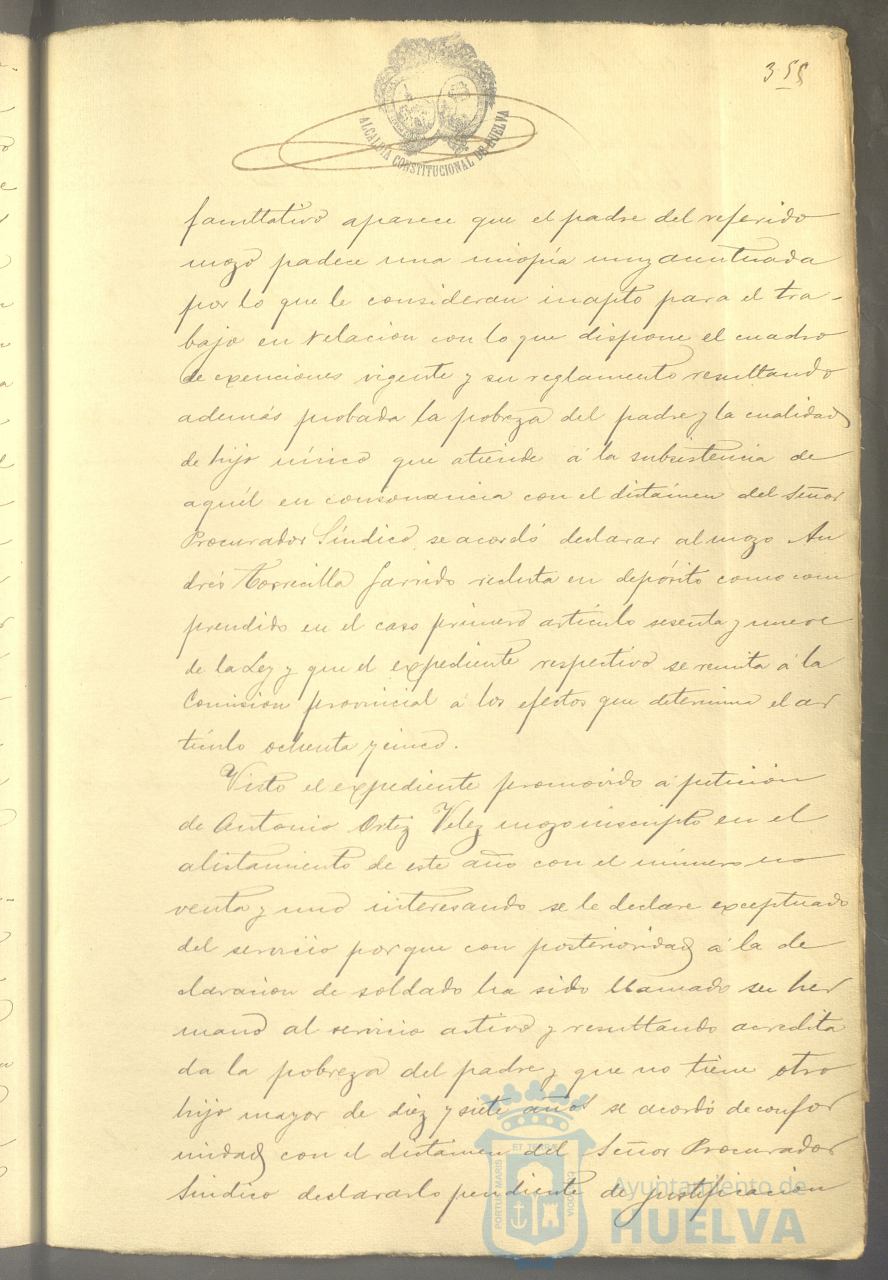 355
ALCALDIA CONSTITUCIONAL DE HUELVA
facultativo aparece que el padre del referido
mozo padece una miopía muy acentuada
por lo que le consideran inapto para el tra-
bajo en relacion con lo que dispone el cuadro
de exenciones vigente y su reglamento resultando
además probada la pobreza del padre y la cualidad
de hijo único que atiende á la subsistencia de
aquél en consonancia con el dictámen del Señor
Procurador Síndico se acordó declarar al mozo An
drés Torrecilla Garrido recluta en depósito como com
prendido en el caso primero artículo sesenta y nueve
de la Ley y que el expediente respectivo se remita á la
Comision provincial á los efectos que determina el ar
tículo ochenta y cinco.
Visto el expediente promovido á peticion
de Antonio Ortiz Velez mozo inscripto en el
alistamiento de este año con el número no
venta y uno interesando se le declare exceptuado
del servicio porque con posterioridad á la de
claracion de soldado ha sido llamado su her
mano al servicio activo y resultando acredita
da la pobreza del padre y que no tiene otro
hijo mayor de diez y siete años se acordó de confor
midad con el dictamen del Señor Procurador
Sindico declararlo pendiente de justificacion
PORTUS MARIS ET TERRAE CUSTODIA
Ayuntamiento de
HUELVA